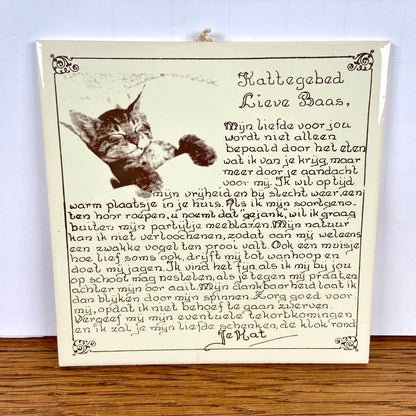 Kattegebed
Lieve Baas,
Mijn liefde voor jou
wordt niet alleen
bepaald door het eten
wat ik van je krijg, maar
meer door je aandacht
voor mij. Ik wil op tijd
mijn vrijheid en bij slecht weer, een
warm plaatsje in je huis. Als ik mijn soortgeno-
ten hoor roepen, u noemt dat "gejank", wil ik graag
buiten mijn partijtje meeblazen. Mijn natuur
kan ik niet verloochenen, zodat aan mij weleens
een zwakke vogel ten prooi valt. Ook een muisje
hoe lief soms ook, drijft mij tot wanhoop en
doet mij jagen. Ik vind het fijn als ik mij bij jou
op schoot mag nestelen, als je tegen mij praat en
achter mijn oor aait. Mijn dankbaarheid laat ik
dan blijken door mijn spinnen. Zorg goed voor
mij, opdat ik niet behoef te gaan zwerven.
Vergeef mij mijn eventuele tekortkomingen
en ik zal je mijn liefde schenken, de klok rond
Je Kat